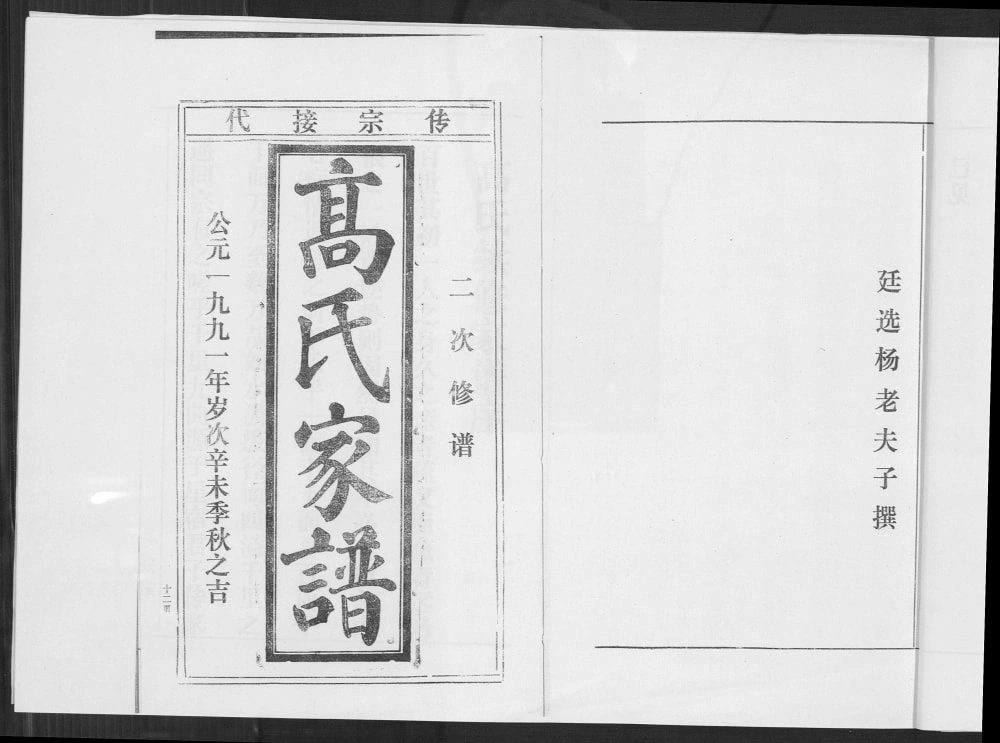 廷选杨老夫子撰
传宗接代
二次修谱
髙氏家譜
公元一九九一年岁次辛未季秋之吉
十二页